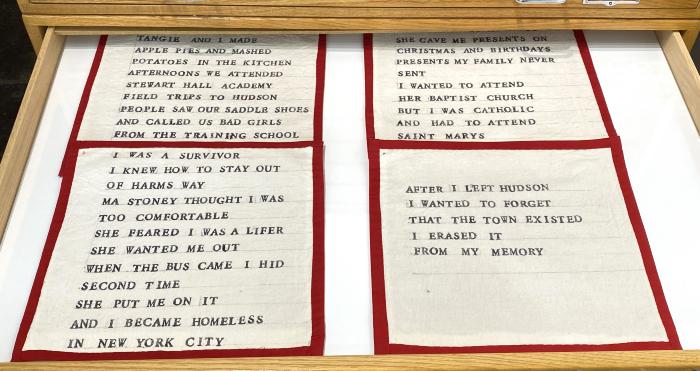 TANGIE AND I MADE
APPLE PIES AND MASHED
POTATOES IN THE KITCHEN
AFTERNOONS WE ATTENDED
STEWART HALL ACADEMY
FIELD TRIPS TO HUDSON
PEOPLE SAW OUR SADDLE SHOES
AND CALLED US BAD GIRLS
FROM THE TRAINING SCHOOL
I WAS A SURVIVOR
I KNEW HOW TO STAY OUT
OF HARMS WAY
MA STONEY THOUGHT I WAS
TOO COMFORTABLE
SHE FEARED I WAS A LIFER
SHE WANTED ME OUT
WHEN THE BUS CAME I HID
SECOND TIME
SHE PUT ME ON IT
AND I BECAME HOMELESS
IN NEW YORK CITY
SHE GAVE ME PRESENTS ON
CHRISTMAS AND BIRTHDAYS
PRESENTS MY FAMILY NEVER
SENT
I WANTED TO ATTEND
HER BAPTIST CHURCH
BUT I WAS CATHOLIC
AND HAD TO ATTEND
SAINT MARYS
AFTER I LEFT HUDSON
I WANTED TO FORGET
THAT THE TOWN EXISTED
I ERASED IT
FROM MY MEMORY